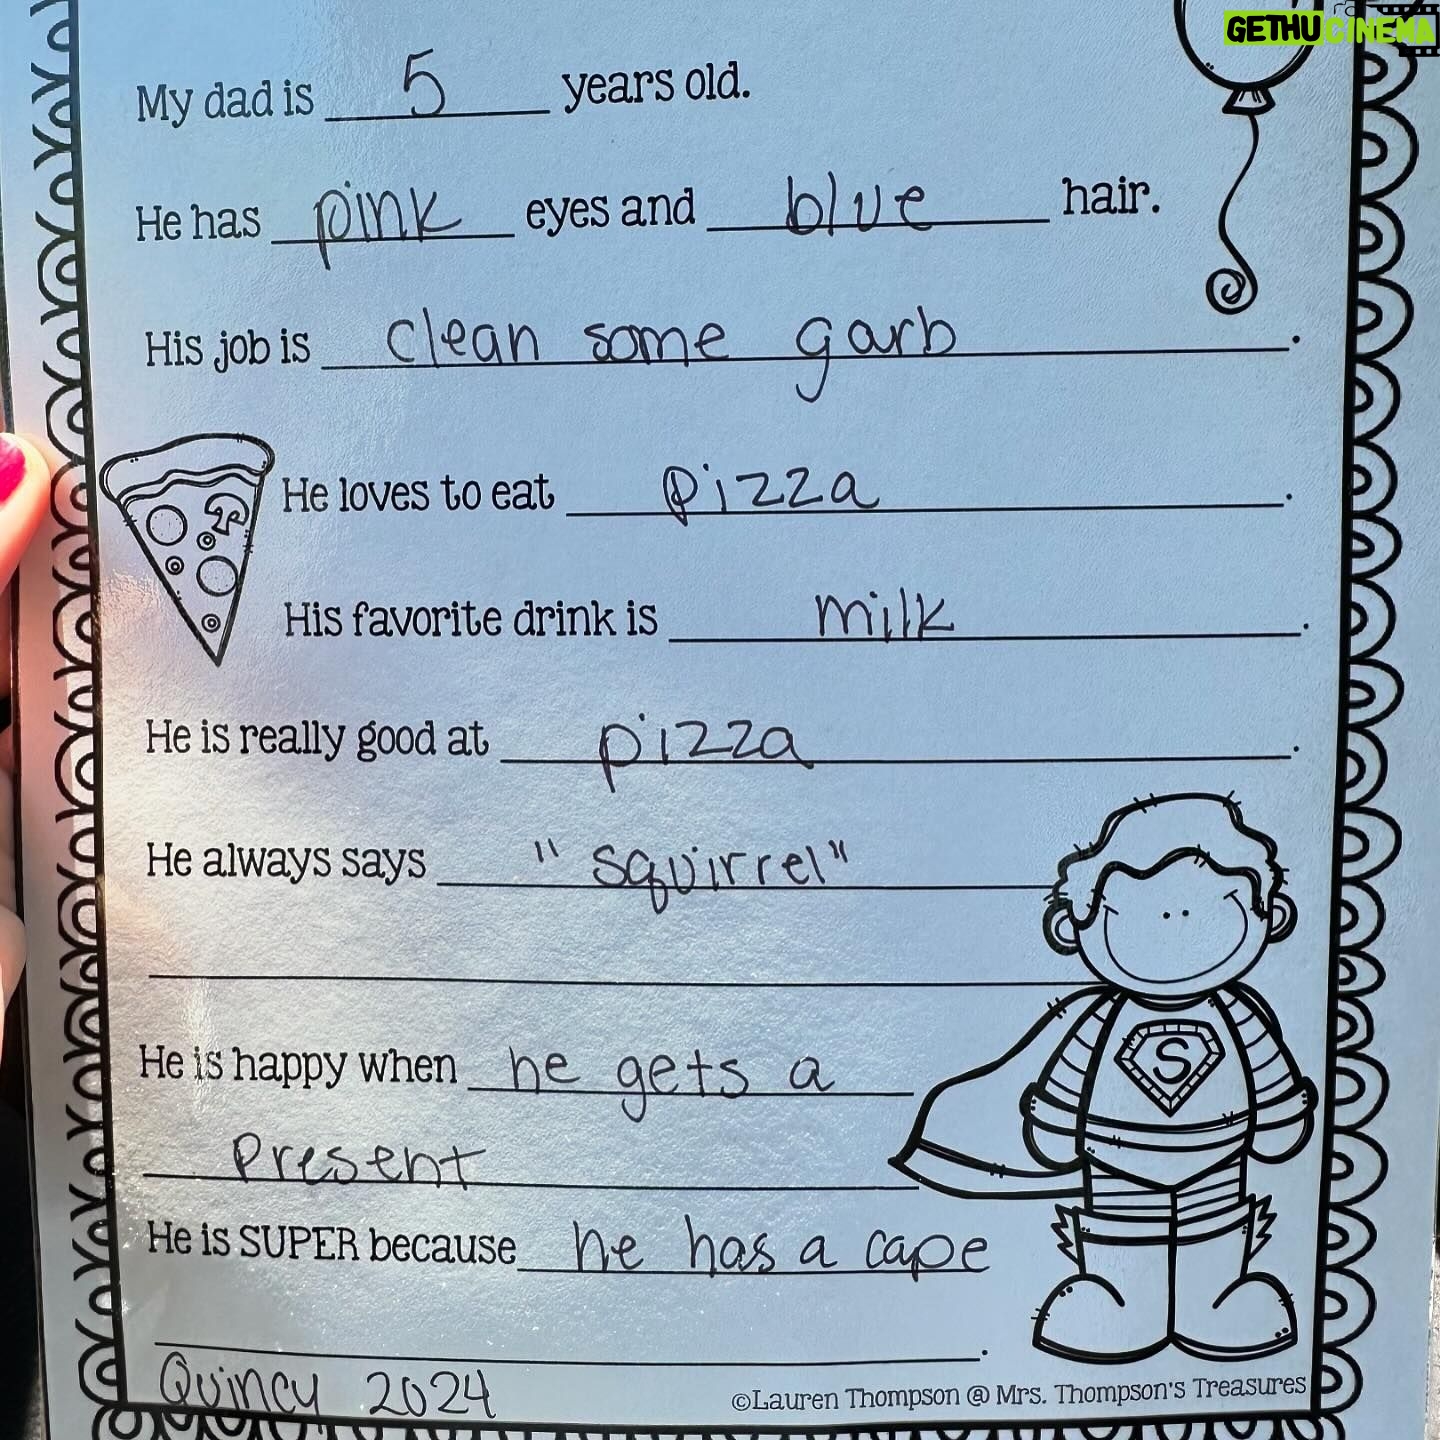 GETHUCINEMA
My dad is 5 years old.
He has pink eyes and blue hair.
His job is clean some garb.
He loves to eat pizza.
His favorite drink is milk.
He is really good at pizza.
He always says "squirrel"
He is happy when he gets a
present
He is SUPER because he has a cape
.
S
Quincy 2024
©Lauren Thompson @ Mrs. Thompson's Treasures